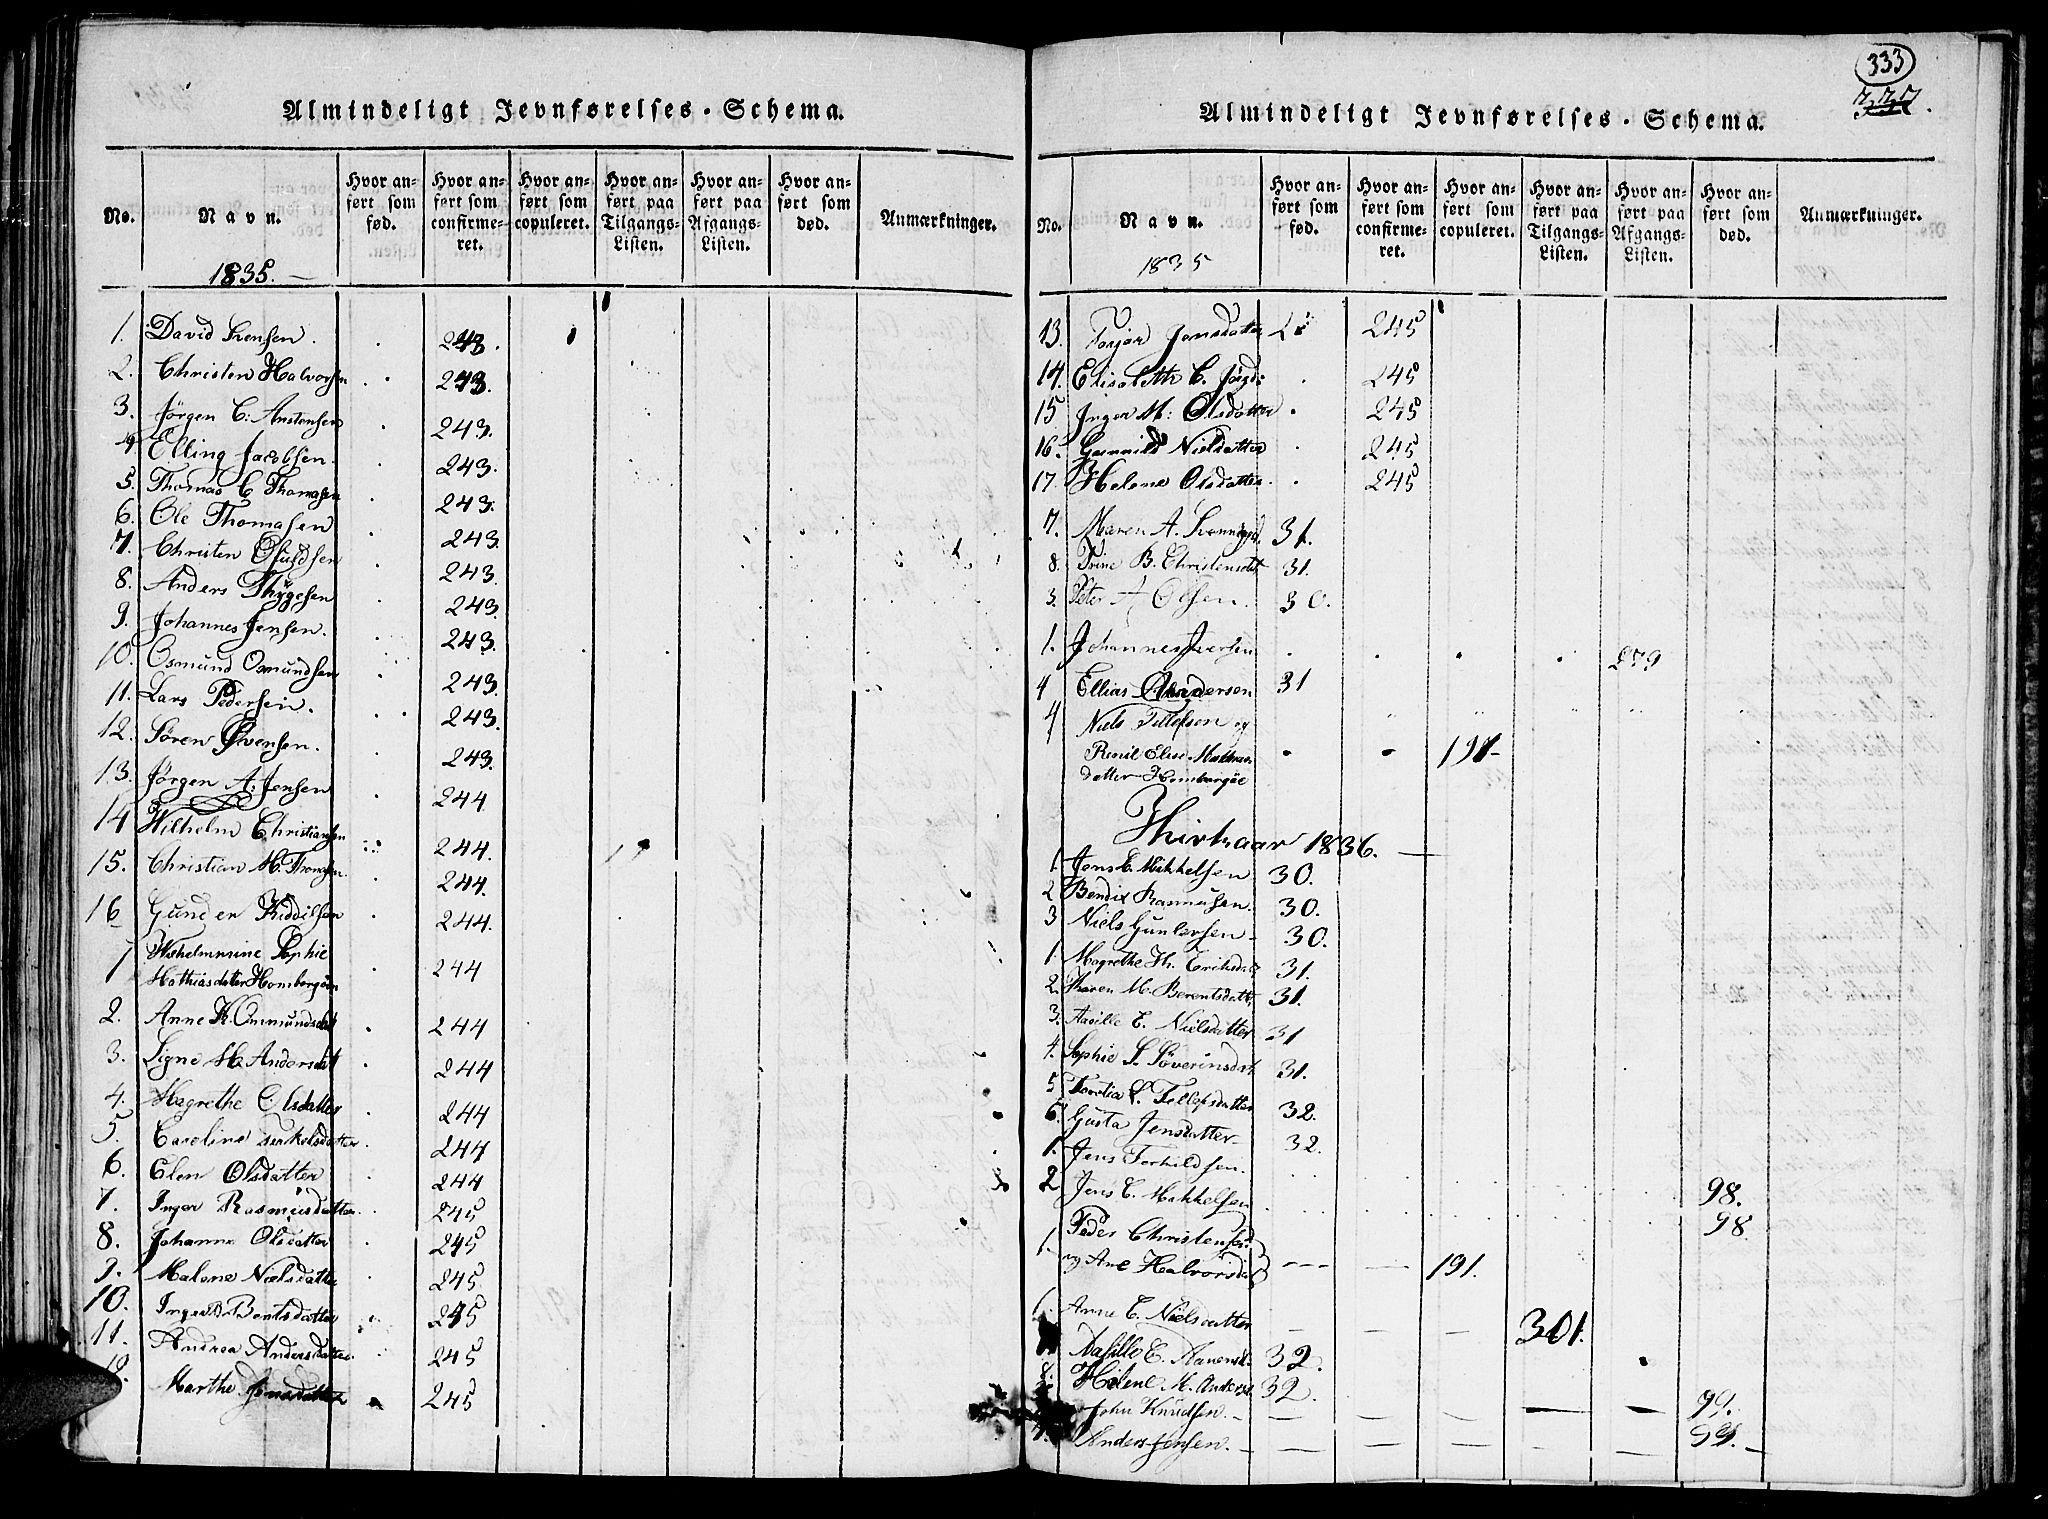 Almindeligt Jevnførelses-Schema.
No. Navn. Hvor anført som fød. Hvor anført som confirmeret. Hvor anført som copuleret. Hvor anført paa Tilgangs-Listen. Hvor anført paa Afgangs-Listen. Hvor anført som død. Anmærkninger.
1835.
1. David Svensen. 243.
2. Christen Halvorsen 243.
3. Jörgen C: Anstensen 243.
4 Elling Jacobsen. 243.
5. Thomas C Thomasen 243.
6. Ole Thomasen 243.
7. Christen Olufsen 243.
8. Anders Thygesen 243.
9. Johannes Jensen. 243.
10. Osmund Osmundsen 243.
11. Lars Pedersen. 243.
12. Sören Svensen. 243.
13. Jörgen A. Jensen 244
14 Wilhelm Christiansen 244.
15. Christian M. Thomsen. 244.
16 Gunder Kiddilsen 244.
1 Wilhelmmine Sophie
Mathiasdatter Hombergöen 244
2. Anne K Ommundsdat 244
3. Signe M Andersdat 244
4. Magrethe Olsdatter 244
5. Caroline datter 244
6. Elen Olsdatter 244
7. Inger Rasmusdatter. 245
8. Johanne Olsdatter 245
9. Malene Nielsdatter 245.
10. Inger Bentsdatter 245
11. Andrea Andersdatter 245
12. Marthe Jensdatter 245
333
Almindeligt Jevnførelses-Schema.
No. Navn. Hvor anført som fød. Hvor anført som confirmeret. Hvor anført som copuleret. Hvor anført paa Tilgangs-Listen. Hvor anført paa Afgangs-Listen. Hvor anført som død. Anmærkninger.
1835
13. Torjør Jonsdatter 245
14. Elisabeth C. 245
15 Inger M: Olsdatter 245
16. Gunnild Nielsdatter 245
17. Helene Olsdatter. 245
7. Maren A. 31.
8. Trine B. Christensdat 31.
3. Peter A Olsen. 30.
1. Johannes Iversen 279
4 Ellias Andersen 31
4 Niels Tellefsen og
Elise Mathias
datter Hombergöe 191-
Kirkeaar 1836.
1 Jens C. Mikkelsen 30.
2 Bendix Rasmusen. 30.
3 Niels Guntersen 30.
1. Magrethe K. Eriksdat 31.
2. Maren M. Berentsdatt. 31.
3. Aasille C. Nielsdatter 31
4. Sophie S. Söverinsdat 31.
5. Torelia S. Tellefsdatter 32.
6. Gusta Jensdatter 32.
1. Jens Terkildsen. 98.
2 Jens C. Mikkelsen 98
1. Peder Christensen
og Ane Halvorsdat 191.
1. Anne C. Nielsdatter 301.
Aasille C. Aanensd. 32.
8. Helene M. Andersd. 32.
John Knudsen. 99.
Anders Jensen. 99.